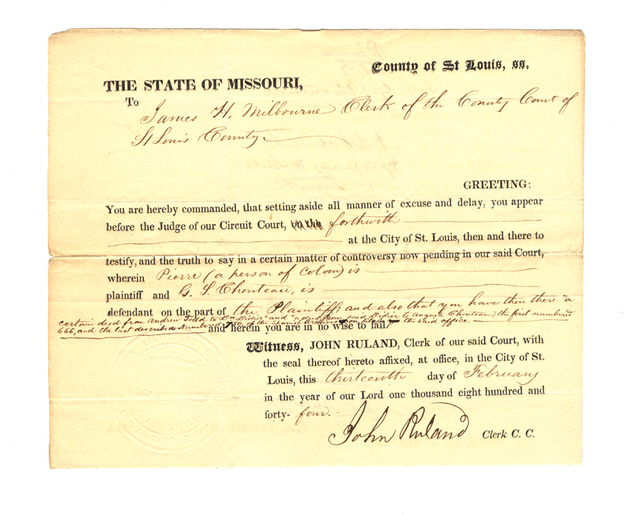 County of St Louis, ss.
THE STATE OF MISSOURI,
To
James H. Milbourne Clerk of the County Court of
St Louis County
GREETING:
You are hereby commanded, that setting aside all manner of excuse and delay, you appear
before the Judge of our Circuit Court, forthwith
at the City of St. Louis, then and there to
testify, and the truth to say in a certain matter of controversy now pending in our said Court,
wherein Pierre (a person of color) is
plaintiff and G. S. Chouteau, is
defendant on the part of the Plaintiff; and also that you have then there "a
certain deed from Andrew Todd to and also Didier to Auguste Chouteau; the first numbered
666, and the last described Numbered in the said office
and herein you are in no wise to fail.
Witness, JOHN RULAND, Clerk of our said Court, with
the seal thereof hereto affixed, at office, in the City of St.
Louis, this thirteenth day of February
in the year of our Lord one thousand eight hundred and
forty-four.
John Ruland Clerk C. C.